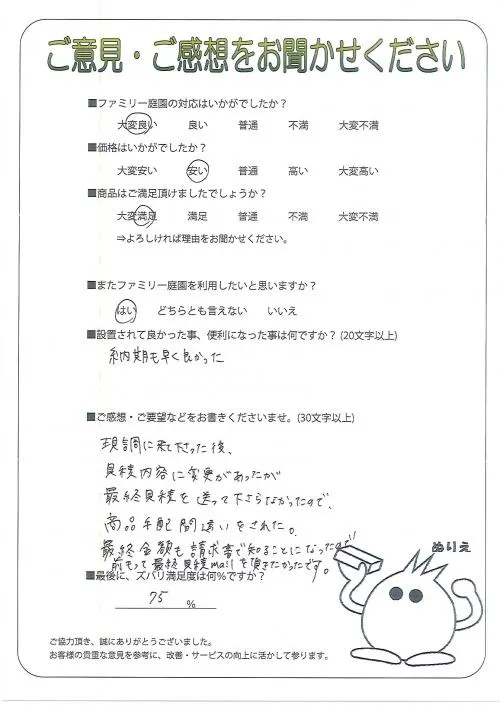 ご意見・ご感想をお聞かせください
■ファミリー庭園の対応はいかがでしたか？
大変良い 良い 普通 不満 大変不満
■価格はいかがでしたか？
大変安い 安い 普通 高い 大変高い
■商品はご満足頂けましたでしょうか？
大変満足 満足 普通 不満 大変不満
⇒よろしければ理由をお聞かせください。
■またファミリー庭園を利用したいと思いますか？
はい どちらとも言えない いいえ
■設置されて良かった事、便利になった事は何ですか？(20文字以上)
納期も早く良かった
■ご感想・ご要望などをお書きくださいませ。(30文字以上)
現調に来て下さった後、
見積内容に変更があったが
最終見積を送って下さらなかったので、
商品手配間違いをされた。
最終金額も請求書で知ることになったので
前もって最終見積mailを頂きたかったです。
ぬりえ
■最後に、ズバリ満足度は何%ですか？
75 %
ご協力頂き、誠にありがとうございました。
お客様の貴重な意見を参考に、改善・サービスの向上に活かして参ります。